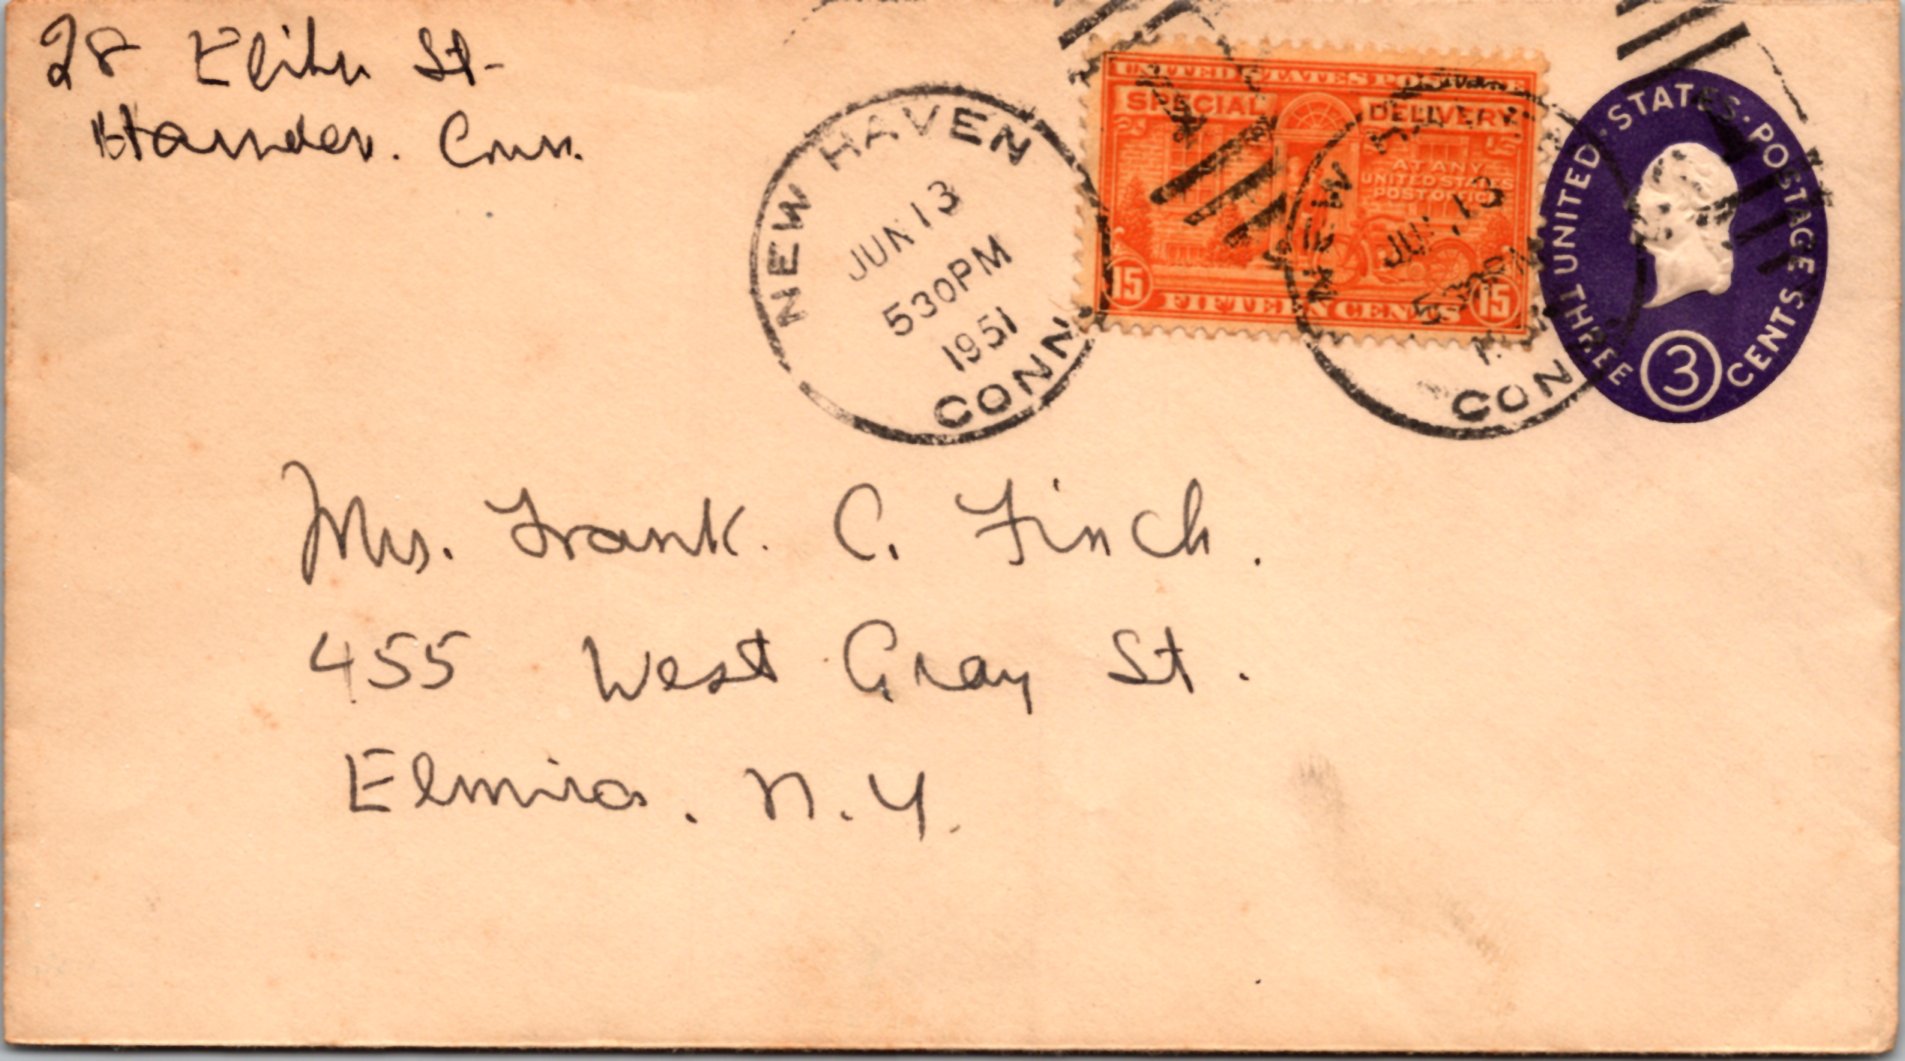 28 Elihu St.
Hamden. Conn.
NEW HAVEN
JUN 13
530PM
1951
CONN.
UNITED STATES POSTAGE
SPECIAL DELIVERY
AT ANY
UNITED STATES
POST OFFICE
15 FIFTEEN CENTS 15
NEW HAVEN
JUN 13
530PM
CONN
UNITED·STATES·POSTAGE
THREE 3 CENTS
Mrs. Frank C. Finch.
455 West Gray St.
Elmira. N.Y.